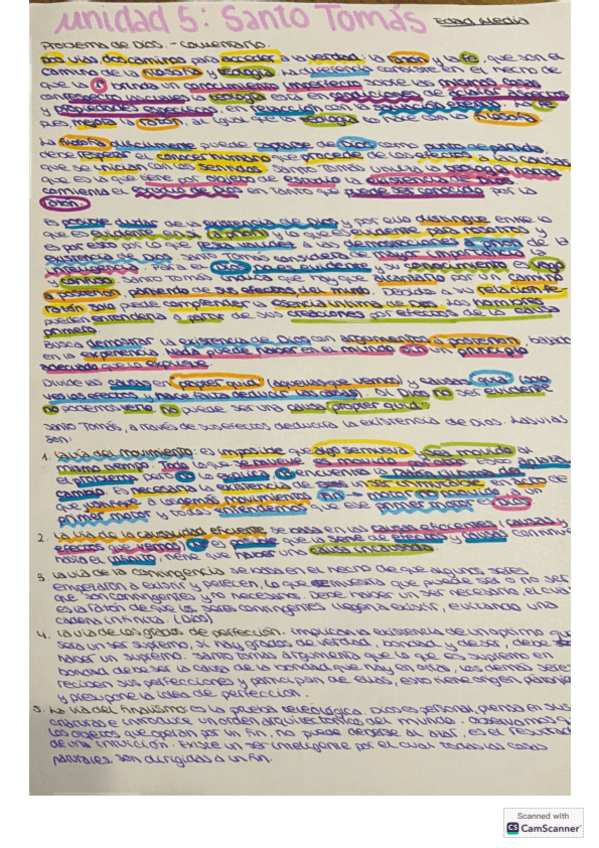 Unidad 5: Santo Tomás Edad Media
Problema de Dios. - Comentario.
Dos vías, dos caminos para acceder a la verdad: la razón y la fe, que son el
camino de la filosofía y teología. La diferencia consiste en el hecho de
que la brinda un conocimiento imperfecto sobre las mismas cosas
teología está en condiciones de
y propiedades en relación con la salvación eterna. La fe
razón, al igual que la teología lo hace con la filosofía
La filosofía difícilmente puede partir de Dios como punto de partida,
debe el conocer humano que procede de los efectos a las causas
que se inician con los sentidos. Santo Tomás teología natural
que es la que tiene cometido de la existencia de Dios
el de Dios en tanto que puede ser conocido por la
razón.
Es posible dudar de la existencia de Dios y por ello distingue entre lo
que es evidente en sí y lo que es evidente para nosotros y
es por eso por lo que a las demostraciones a priori de la
existencia de Dios. Santo Tomás considera de mayor importancia
Para él Dios no es evidente y su conocimiento es vago
y confuso. Santo Tomás que hay que
a posteriori, partiendo de sus efectos, del mundo
razón solo puede comprender la esencia íntima de Dios. Los hombres
pueden entenderla a partir de sus creaciones por efectos de la causa
primera.
Busca demostrar la existencia de Dios con argumentos a posteriori, basado
en la experiencia. Nada puede haber en el mundo sin un principio
adecuado que lo explique.
Divide las causas en propter quid (aquellas que vemos) y causas quia (solo
vemos efectos y hace falta deducir la causa). Al Dios no ser evidente
no podemos verlo, no puede ser una causa "propter quid."
Santo Tomás, a través de sus efectos deducirá la existencia de Dios. Las vías
son:
1. La vía del movimiento: es imposible que algo se mueva y sea movido al
mismo tiempo. Todo lo que se mueve es movido por
cambio. Es necesaria la existencia de un ser inmóvil en
que a los demás movimientos → motor no movido
primer motor y todos entendemos que ese primer motor es Dios
2. La vía de la causalidad eficiente se basa en las causas eficientes (causas y
efectos que vemos), no es posible que la serie de efectos y causas continúe
hasta el infinito, tiene que haber una causa incausada.
3. La vía de la contingencia se basa en el hecho de que algunos seres
empezaron a existir y perecen, lo que muestra que puede ser o no ser
que son contingentes y no necesarios. Debe haber un ser necesario el cual
es la razón de que los seres contingentes lleguen a existir, evitando una
cadena infinita. (Dios)
4. La vía de los grados de perfección. Implica la existencia de un óptimo que
sería un ser supremo, si hay grados de verdad, bondad y de ser, debe
haber un supremo. Santo Tomás argumenta que lo que es supremo en
bondad debe ser la causa de la bondad que hay en ellas, los demás seres
reciben sus perfecciones y participan de ellas, esto tiene origen
y presupone la idea de perfección.
5. La vía del finalismo: es la prueba teleológica. Dios es personal, piensa en sus
criaturas e introduce un orden arquitectónico del mundo. Observamos q
los objetos que operan por un fin, no puede deberse al azar, es el resultado
de una intuición. Existe un ser inteligente por el cual todas las cosas
naturales son dirigidas a un fin.
Scanned with
CS CamScanner